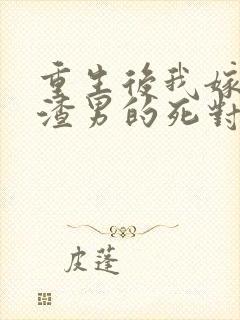 重生後我嫁
渣男的死對
皮蓬